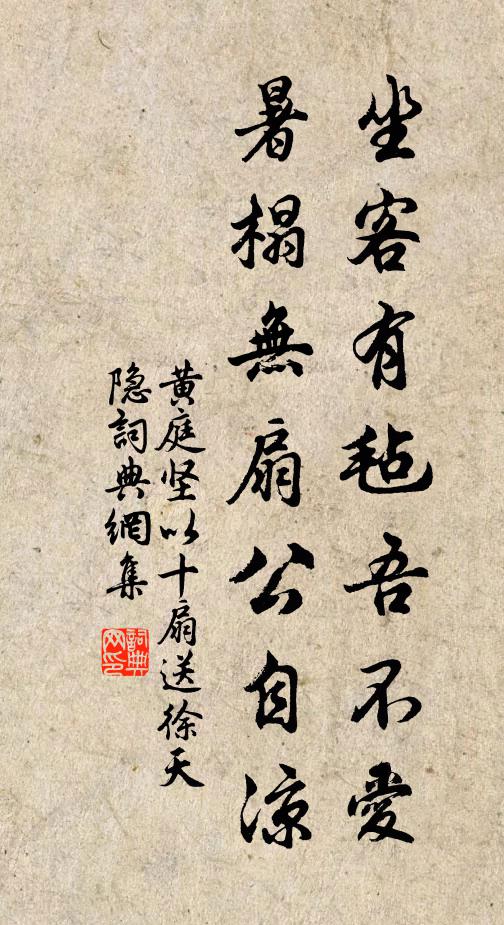 坐客有毡吾不愛
暑榻無扇公自凉
黄庭坚以十扇送徐天
隐詞典網集
詞典网印